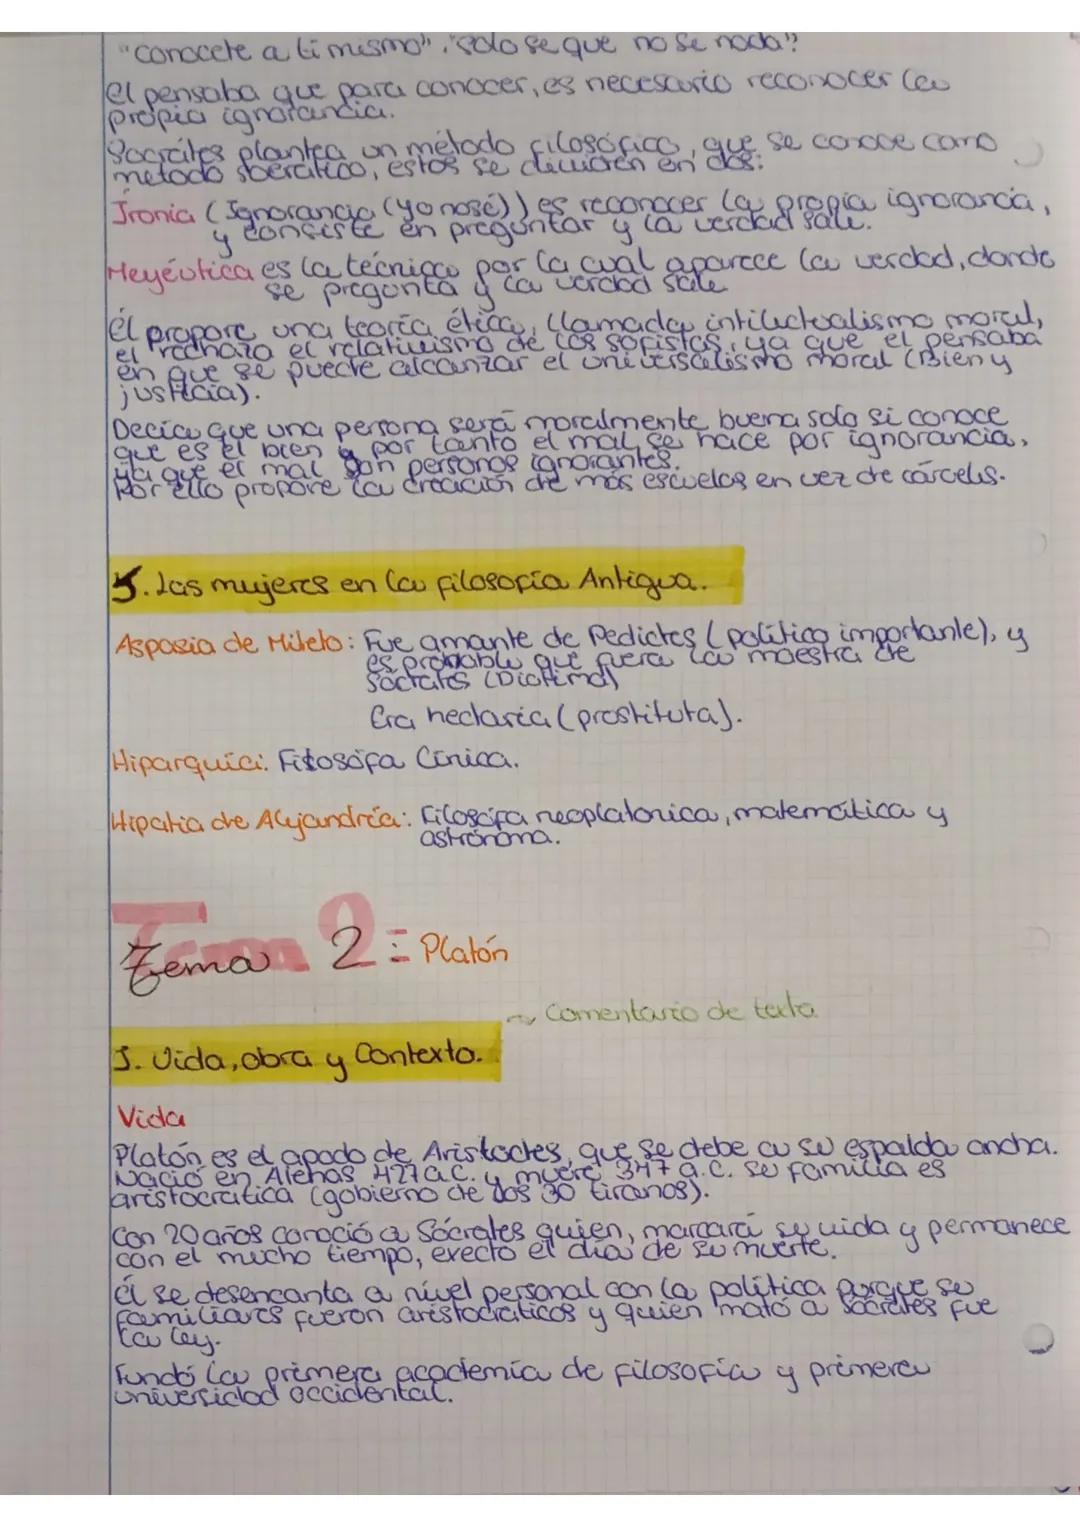 "conocete a ti mismo", "solo se que no se nada".
él pensaba que para conocer, es necesario reconocer la
propia ignorancia.
Socrátes plantea un método filosófico, que se conoce como
metodo socratico, estos se dividen en dos:
Ironia (Ignorancia (yo no sé)) es reconocer la propia ignorancia,
y consiste en preguntar y la verdad sale.
Meyéutica es la técnica por la cual aparece la verdad, donde
se pregunta y la verdad sale
él propone una teoría ética, llamada intilectualismo moral,
el rechaza el relativismo de los sofistas, ya que el pensaba
en que se puede alcanzar el universalismo moral (Bien y
justicia).
Decía que una persona será moralmente buena solo si conoce
que es el bien y por tanto el mal se hace por ignorancia,
ya que el mal son personas ignorantes.
Por ello propone la creación de más escuelas en vez de cárceles.
5. Las mujeres en la filosofía Antigua.
Aspasia de Mileto: Fue amante de Pedicles (político importante), y
es probable que fuera la maestra de
Socrates (Diotima)
Era hectaria (prostituta).
Hiparquia: Filosófa Cínica.
Hipatia de Alejandría: Filosófa neoplatonica, matemática y
astrónoma.
Tema 2: Platón
~ Comentario de texto
1. Vida, obra y Contexto.
Vida
Platón es el apodo de Aristocles, que se debe a su espalda ancha.
Nació en Atenas 427 a.C. y muere 347 a.C. su familia es
aristocratica (gobierno de los 30 tiranos).
Con 20 años conoció a Sócrates quien, marcará su vida y permanece
con el mucho tiempo, execto el día de su muerte.
Él se desencanta a nivel personal con la política porque su
familiares fueron aristocraticos y quien mató a Socrates fue
la ley.
Fundó la primera academia de filosofía y primera
universidad occidental.